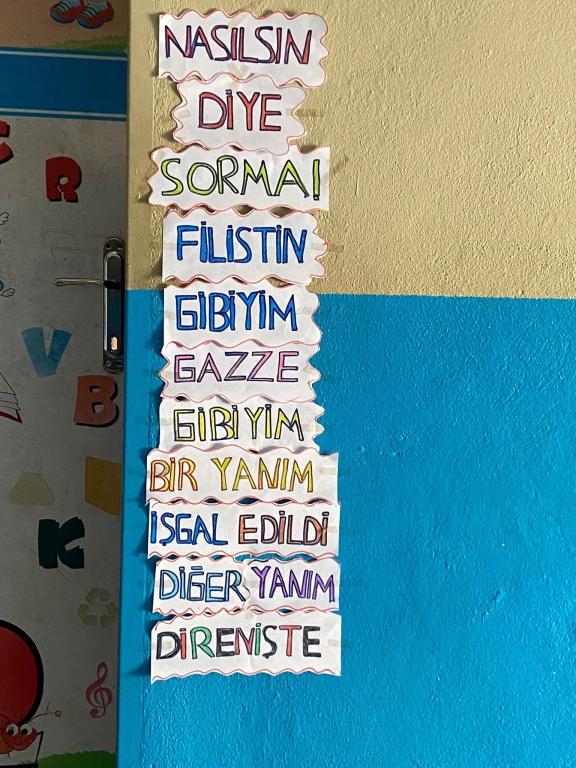 NASILSIN
DİYE
SORMA!
FİLİSTİN
GİBİYİM
GAZZE
GİBİYİM
BİR YANIM
İŞGAL EDİLDİ
DİĞER YANIM
DİRENİŞTE
R
V
B
K